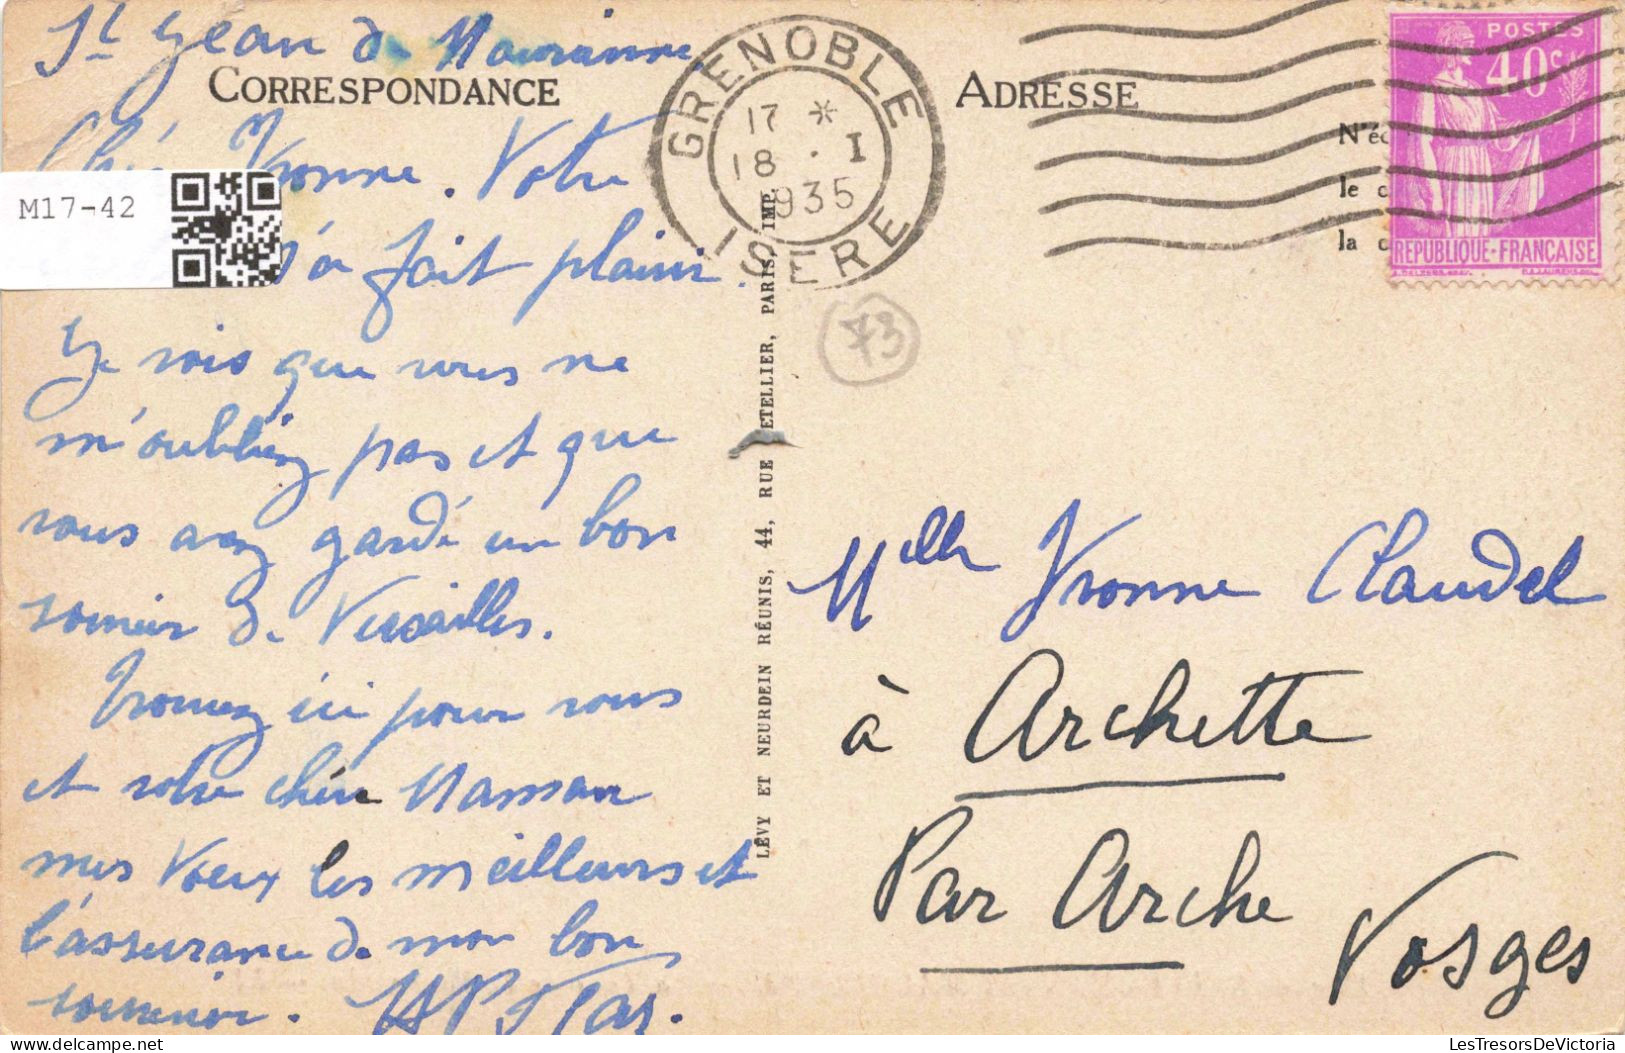 St Jean de Maurienne
CORRESPONDANCE
Chère Yvonne. Votre
m'a fait plaisir.
Je vois que vous ne
m'oubliez pas et que
vous avez gardé un bon
souvenir de Versailles.
Trouvez ici pour vous
et votre chère Maman
mes Voeux les meilleurs et
l'assurance de mon bon
souvenir.
M17-42
GRENOBLE
17 *
18 . I
1935
ISERE
73
LÉVY ET NEURDEIN RÉUNIS, 44, RUE LETELLIER, PARIS, IMP.
ADRESSE
N'é
le c
la c
POSTES
40c
REPUBLIQUE-FRANÇAISE
Melle Yvonne Claudel
à Archette
Par Arche
Vosges
LesTresorsDeVictoria